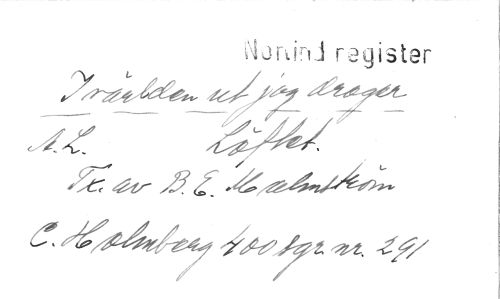 Norlind register
I världen ut jag drager
A. L. Löftet.
Tx. av B. E. Malmström
C. Holmberg 400 sgr. nr. 291